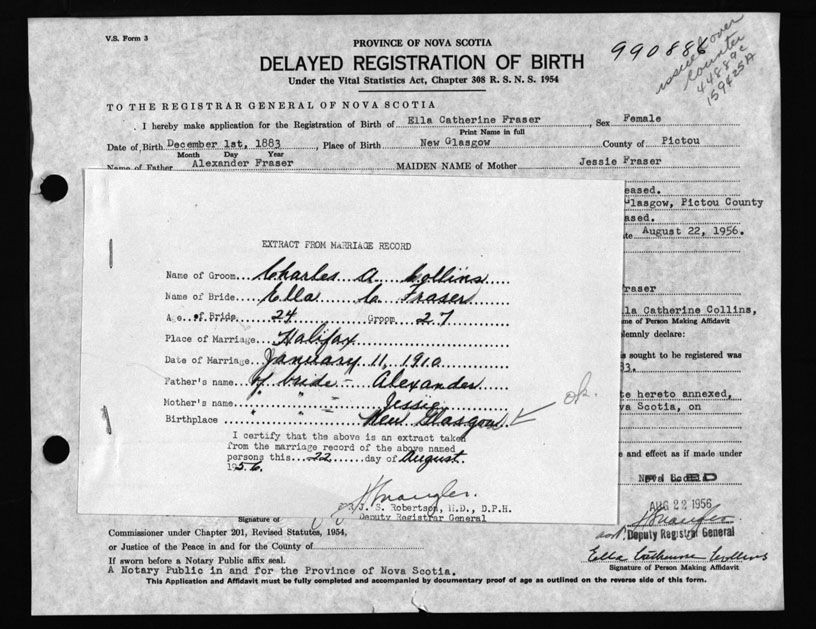 V.S. Form 3
PROVINCE OF NOVA SCOTIA
990886
DELAYED REGISTRATION OF BIRTH
issued over
counter
44889c
159425A
Under the Vital Statistics Act, Chapter 308 R. S. N. S. 1954
TO THE REGISTRAR GENERAL OF NOVA SCOTIA
I hereby make application for the Registration of Birth of Ella Catherine Fraser, Sex Female
Print Name in full
Date of Birth December 1st, 1883, Place of Birth New Glasgow County of Pictou
Month Day Year
Name of Father Alexander Fraser MAIDEN NAME of Mother Jessie Fraser
eased.
Glasgow, Pictou County
ased.
te August 22, 1956.
raser
lla Catherine Collins,
me of Person Making Affidavit
lemnly declare:
s sought to be registered was
83.
te hereto annexed,
va Scotia, on
e and effect as if made under
EXTRACT FROM MARRIAGE RECORD
Name of Groom...Charles A Collins
Name of Bride...Ella C Fraser
Age of Bride 24 Groom 27
Place of Marriage...Halifax
Date of Marriage...January 11, 1910
Father's name...of bride - Alexander
Mother's name " " - Jessie
Birthplace " " New Glasgow ok.
I certify that the above is an extract taken
from the marriage record of the above named
persons this...22...day of August.
1956.
J. S. Robertson, M.D., D.P.H.
Deputy Registrar General
FILED
AUG 22 1956
Deputy Registrar General
Signature of
Commissioner under Chapter 201, Revised Statutes, 1954,
or Justice of the Peace in and for the County of
If sworn before a Notary Public affix seal.
Ella Catherine Collins
Signature of Person Making Affidavit
A Notary Public in and for the Province of Nova Scotia.
This Application and Affidavit must be fully completed and accompanied by documentary proof of age as outlined on the reverse side of this form.